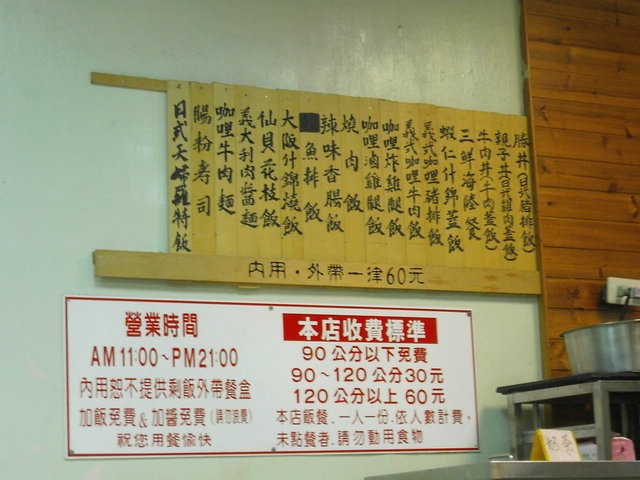 勝丼(日式豬排飯)
親子丼(日式雞肉蓋飯)
牛肉丼(牛肉蓋飯)
三鮮海陸餐
蝦仁什錦蓋飯
義式咖哩豬排飯
義式咖哩牛肉飯
咖哩炸雞腿飯
咖哩滷雞腿飯
燒肉飯
辣味香腸飯
魚排飯
大阪什錦燒飯
仙貝花枝飯
義大利肉醬麵
咖哩牛肉麵
腸粉壽司
日式天婦羅特飯
內用·外帶一律60元
營業時間
AM 11:00~PM 21:00
內用恕不提供剩飯外帶餐盒
加飯免費&加醬免費(請勿浪費)
祝您用餐愉快
本店收費標準
90公分以下免費
90~120公分30元
120公分以上 60元
本店飯餐.一人一份.依人數計費.
未點餐者.請勿動用食物